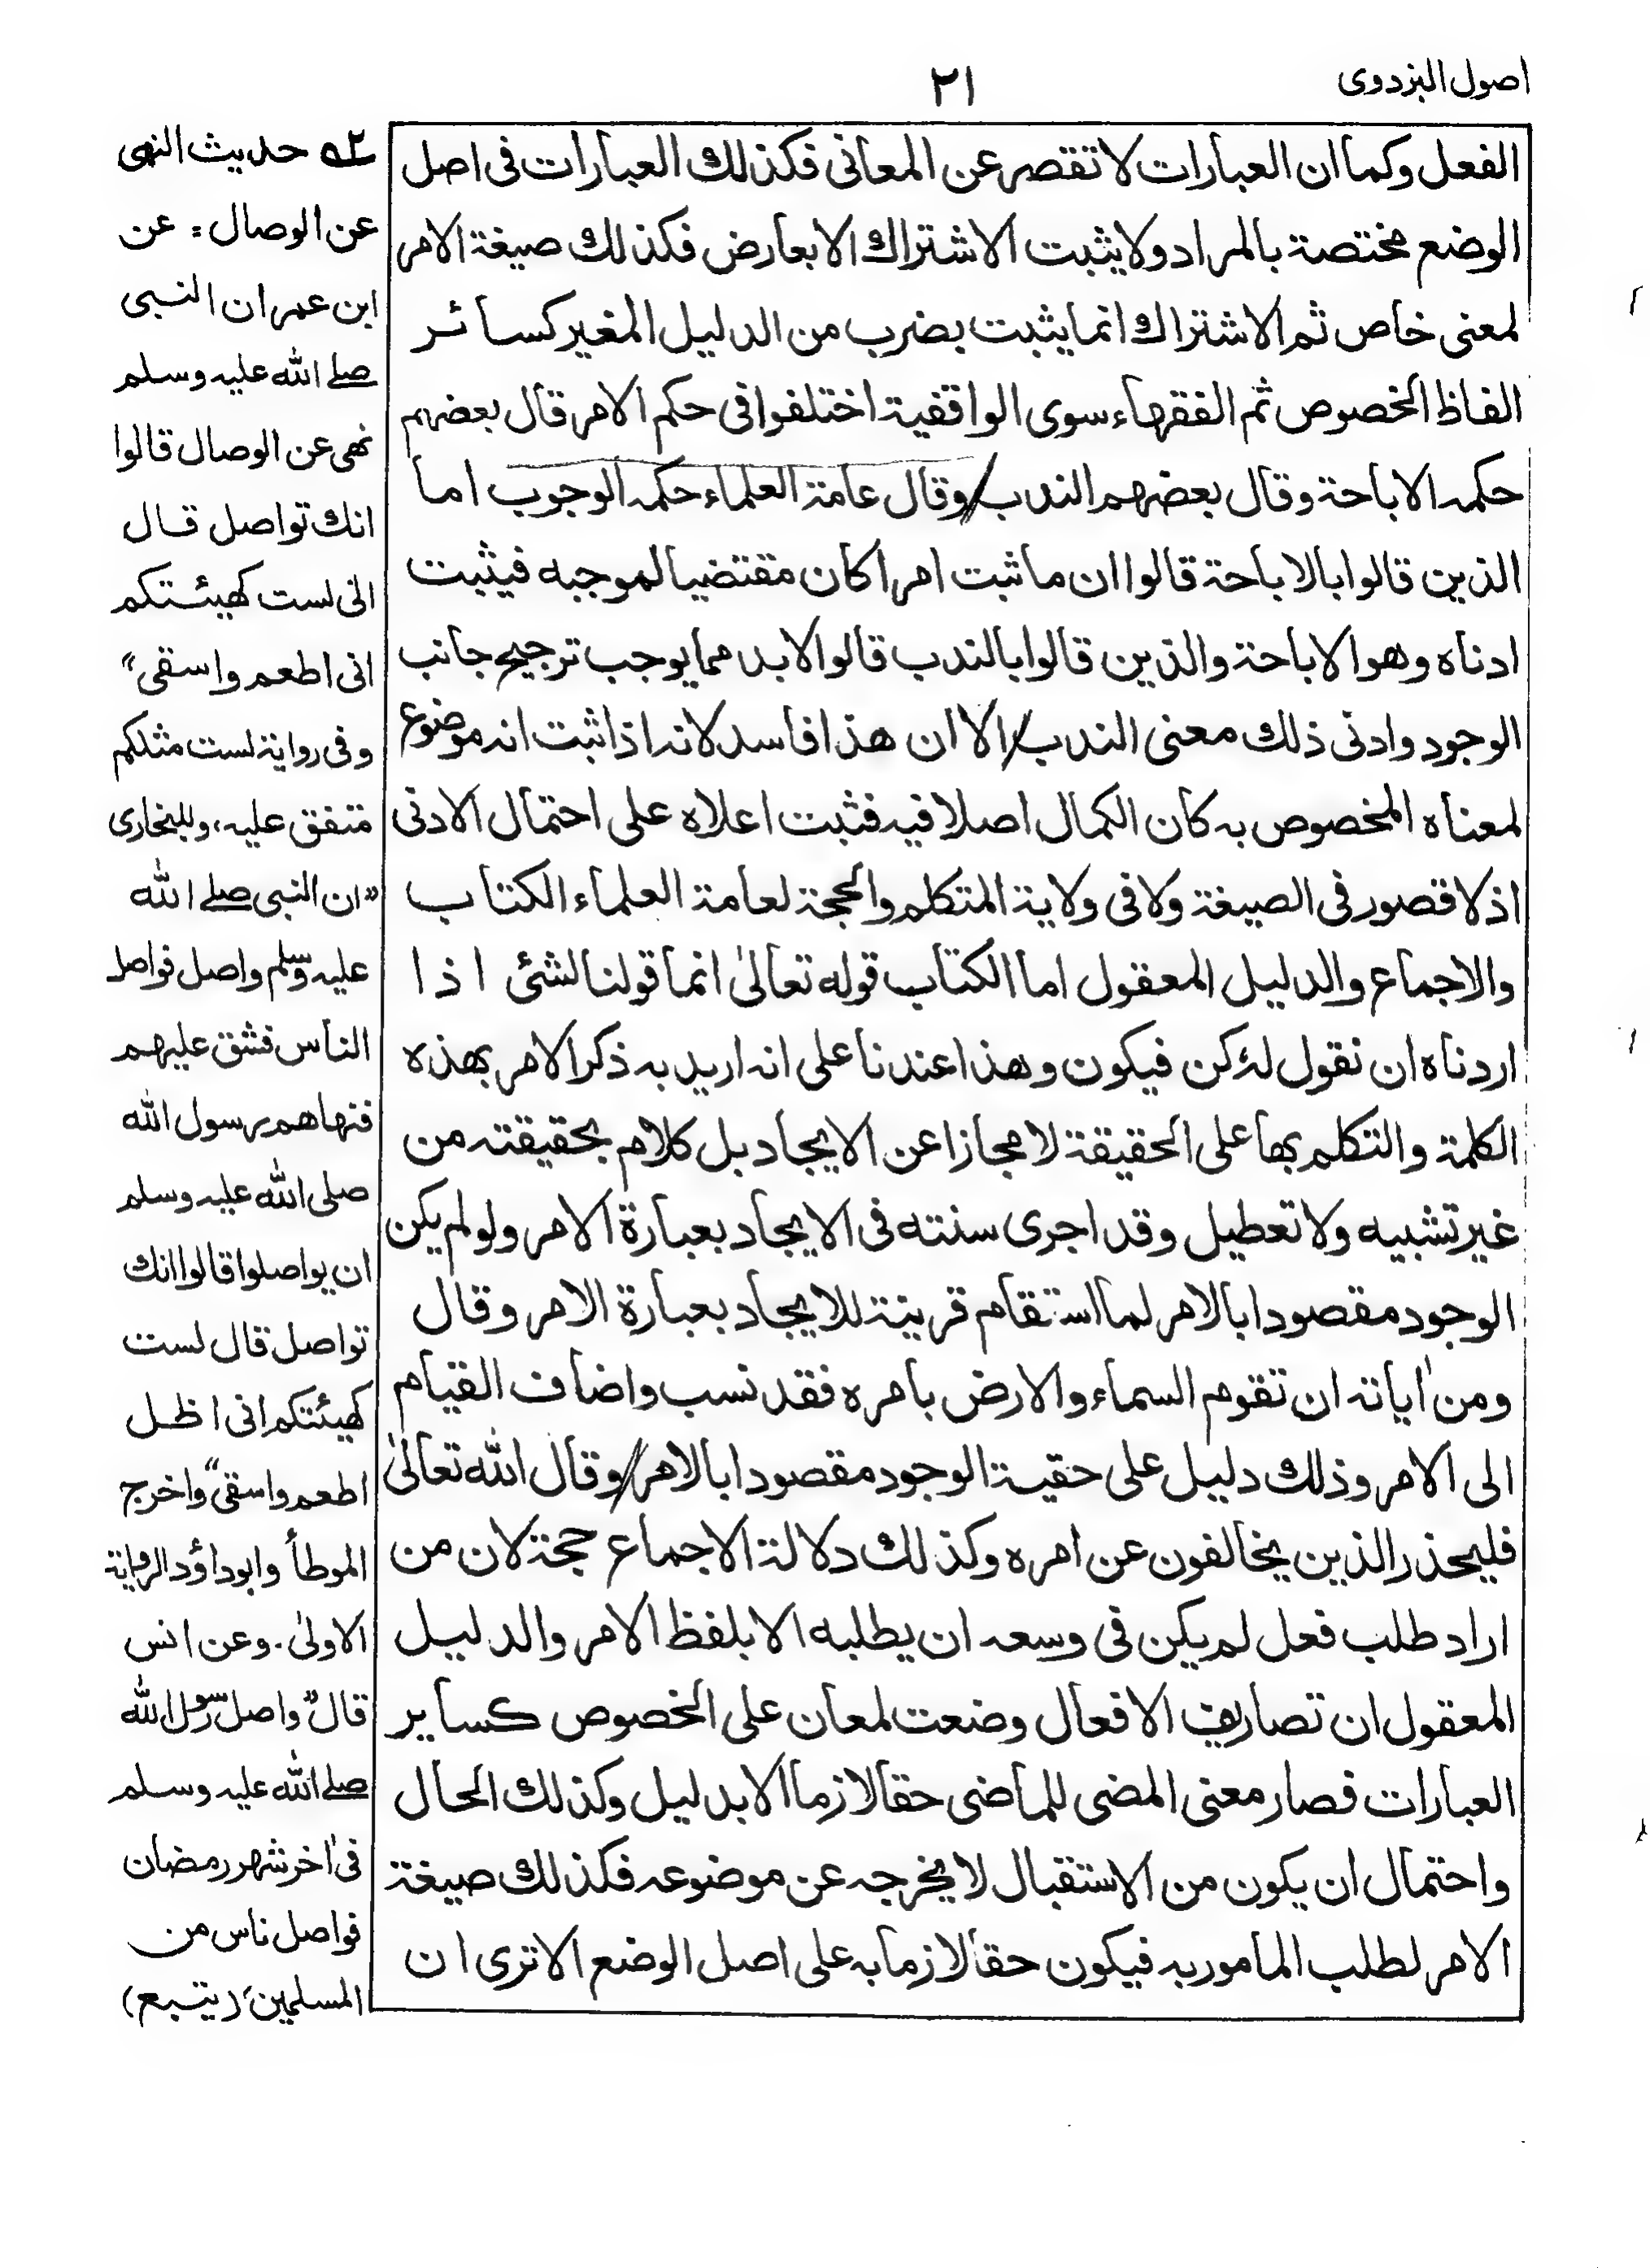 اصول البزدوی
٢١
الفعل وكما ان العبارات لا تقصر عن المعانى فكذلك العبارات فى اصل
الوضع مختصة بالمراد ولا يثبت الاشتراك الا بعارض فكذلك صيغة الامر
لمعنى خاص ثم الاشتراك انما يثبت بضرب من الدليل المغير كسائر
الفاظ الخصوص ثم الفقهاء سوى الواقفية اختلفوا فى حكم الامر قال بعضهم
حكمه الاباحة وقال بعضهم الندب وقال عامة العلماء حكمه الوجوب اما
الذين قالوا بالاباحة قالوا ان ما ثبت امرا كان مقتضيا لموجبه فيثبت
ادناه وهو الاباحة والذين قالوا بالندب قالوا لابد مما يوجب ترجيح جانب
الوجود وادنى ذلك معنى الندب الا ان هذا فاسد لانه اذا ثبت انه موضوع
لمعناه المخصوص به كان الكمال اصلا فيه فثبت اعلاه على احتمال الادنى
اذ لا قصور فى الصيغة ولا فى ولاية المتكلم والحجة لعامة العلماء الكتاب
والاجماع والدليل المعقول اما الكتاب قوله تعالىٰ انما قولنا لشئ اذا
اردناه ان نقول لهٗ كن فيكون وهذا عندنا على انه اريد به ذكر الامر بهذه
الكلمة والتكلم بها على الحقيقة لا مجازا عن الايجاد بل كلام بحقيقته من
غير تشبيه ولا تعطيل وقد اجرى سنته فى الايجاد بعبارة الامر ولو لم يكن
الوجود مقصودا بالامر لما استقام قرينة للايجاد بعبارة الامر وقال
ومن اٰياته ان تقوم السماء والارض بامره فقد نسب واضاف القيام
الى الامر وذلك دليل على حقية الوجود مقصودا بالامر وقال الله تعالىٰ
فليحذر الذين يخالفون عن امره وكذلك دلالة الاجماع حجة لان من
اراد طلب فعل لم يكن فى وسعه ان يطلبه الا بلفظ الامر والدليل
المعقول ان تصاريف الافعال وضعت لمعان على الخصوص كساير
العبارات فصار معنى المضى للماضى حقا لازما الا بدليل وكذلك الحال
واحتمال ان يكون من الاستقبال لا يخرجه عن موضوعه فكذلك صيغة
الامر لطلب المامور به فيكون حقا لازما به على اصل الوضع الا ترى ان
٢ حديث النهى
عن الوصال = عن
ابن عمر ان النبى
صلے الله عليه وسلم
نهى عن الوصال قالوا
انك تواصل قال
انى لست كهيئتكم
انى اطعم واسقى"
وفى رواية لست مثلكم
متفق عليه، وللبخارى
"ان النبى صلے الله
عليه وسلم واصل فواصل
الناس فشق عليهم
فنهاهم رسول الله
صلى الله عليه وسلم
ان يواصلوا قالوا انك
تواصل قال لست
كهيئتكم انى اظل
اطعم واسقى" واخرج
الموطأ وابوداؤد الرواية
الاولىٰ. وعن انس
قال "واصل رسول الله
صلے الله عليه وسلم
فى اٰخر شهر رمضان
فواصل ناس من
المسلمين (يتبع)